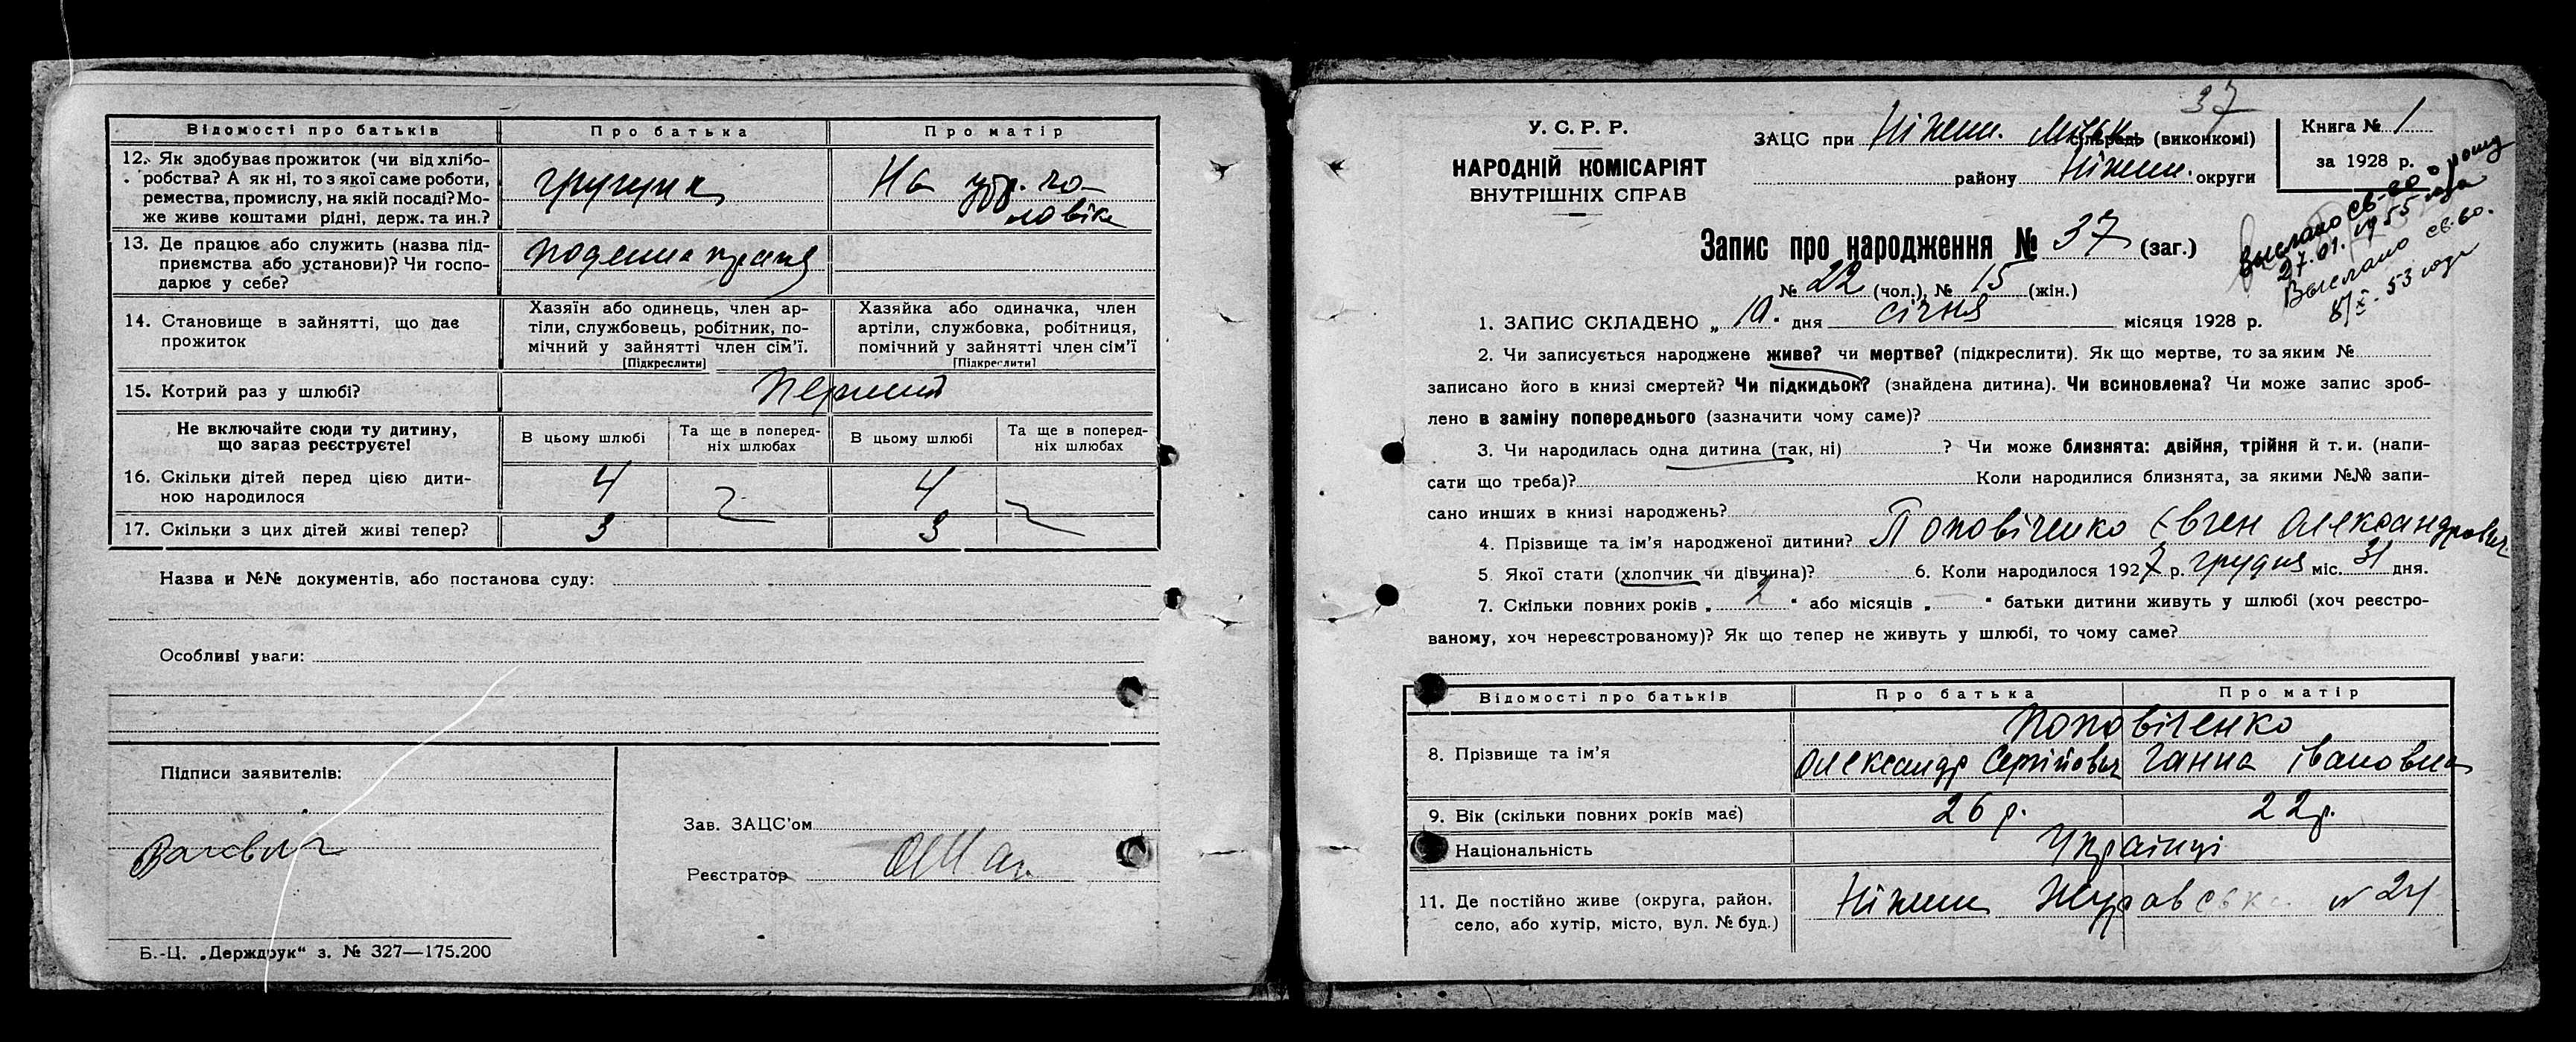 Відомості про батьків
Про батька
Про матір
12. Як здобуває прожиток (чи від хлібо-
робства? А як ні, то з якої саме роботи,
ремества, промислу, на якій посаді? Мо-
же живе коштами рідні, держ. та ин.?
грущик
На утр. чо-
ловіка
13. Де працює або служить (назва під-
приємства або установи)? Чи госпо-
дарює у себе?
поденна праця
14. Становище в зайнятті, що дає
прожиток
Хазяїн або одинець, член ар-
тіли, службовець, робітник, по-
мічний у зайнятті член сім'ї.
[Підкреслити]
Хазяйка або одиначка, член
артіли, службовка, робітниця,
помічний у зайнятті член сім'ї
[Підкреслити]
15. Котрий раз у шлюбі?
Перший
Не включайте сюди ту дитину,
що зараз реєструєте!
В цьому шлюбі
Та ще в поперед-
ніх шлюбах
В цьому шлюбі
Та ще в поперед-
ніх шлюбах
16. Скільки дітей перед цією дити-
ною народилося
4
4
17. Скільки з цих дітей живі тепер?
3
3
Назва и №№ документів, або постанова суду:
Особливі уваги:
Підписи заявителів:
Зав. ЗАЦС'ом
Реєстратор
Б.-Ц. „Держдрук“ з. № 327—175.200
37
У. С. Р. Р.
НАРОДНІЙ КОМІСАРІЯТ
ВНУТРІШНІХ СПРАВ
ЗАЦС при Ніжен. міськ (виконкомі)
району Ніжен. округи
Книга № 1
за 1928 р.
Выслано св-во
27.01.1955 года
Выслано св.во.
8/X. 53 года
Запис про народження № 37 (заг.)
№ 22 (чол.), № 15 (жін.)
1. ЗАПИС СКЛАДЕНО „10. дня січня місяця 1928 р.
2. Чи записується народжене живе? чи мертве? (підкреслити). Як що мертве, то за яким №
записано його в книзі смертей? Чи підкидьок? (знайдена дитина). Чи всиновлена? Чи може запис зроб-
лено в заміну попереднього (зазначити чому саме)?
3. Чи народилась одна дитина (так, ні) ? Чи може близнята: двійня, трійня й т. и. (напи-
сати що треба)? Коли народилися близнята, за якими №№ запи-
сано инших в книзі народжень?
4. Прізвище та ім'я народженої дитини? Поповіченко Євген Олександрович
5. Якої стати (хлопчик чи дівчина)? 6. Коли народилося 1927 р. грудня міс. 31 дня.
7. Скільки повних років „ 2 “ або місяців „ “ батьки дитини живуть у шлюбі (хоч реєстро-
ваному, хоч нереєстрованому)? Як що тепер не живуть у шлюбі, то чому саме?
Відомості про батьків
Про батька
Про матір
8. Прізвище та ім'я
Поповіченко
Олександр Сергійович
Ганна Івановна
9. Вік (скільки повних років має)
26 р.
22 р.
Національність
Українці
11. Де постійно живе (округа, район,
село, або хутір, місто, вул. № буд.)
Ніжин Журавська № 24